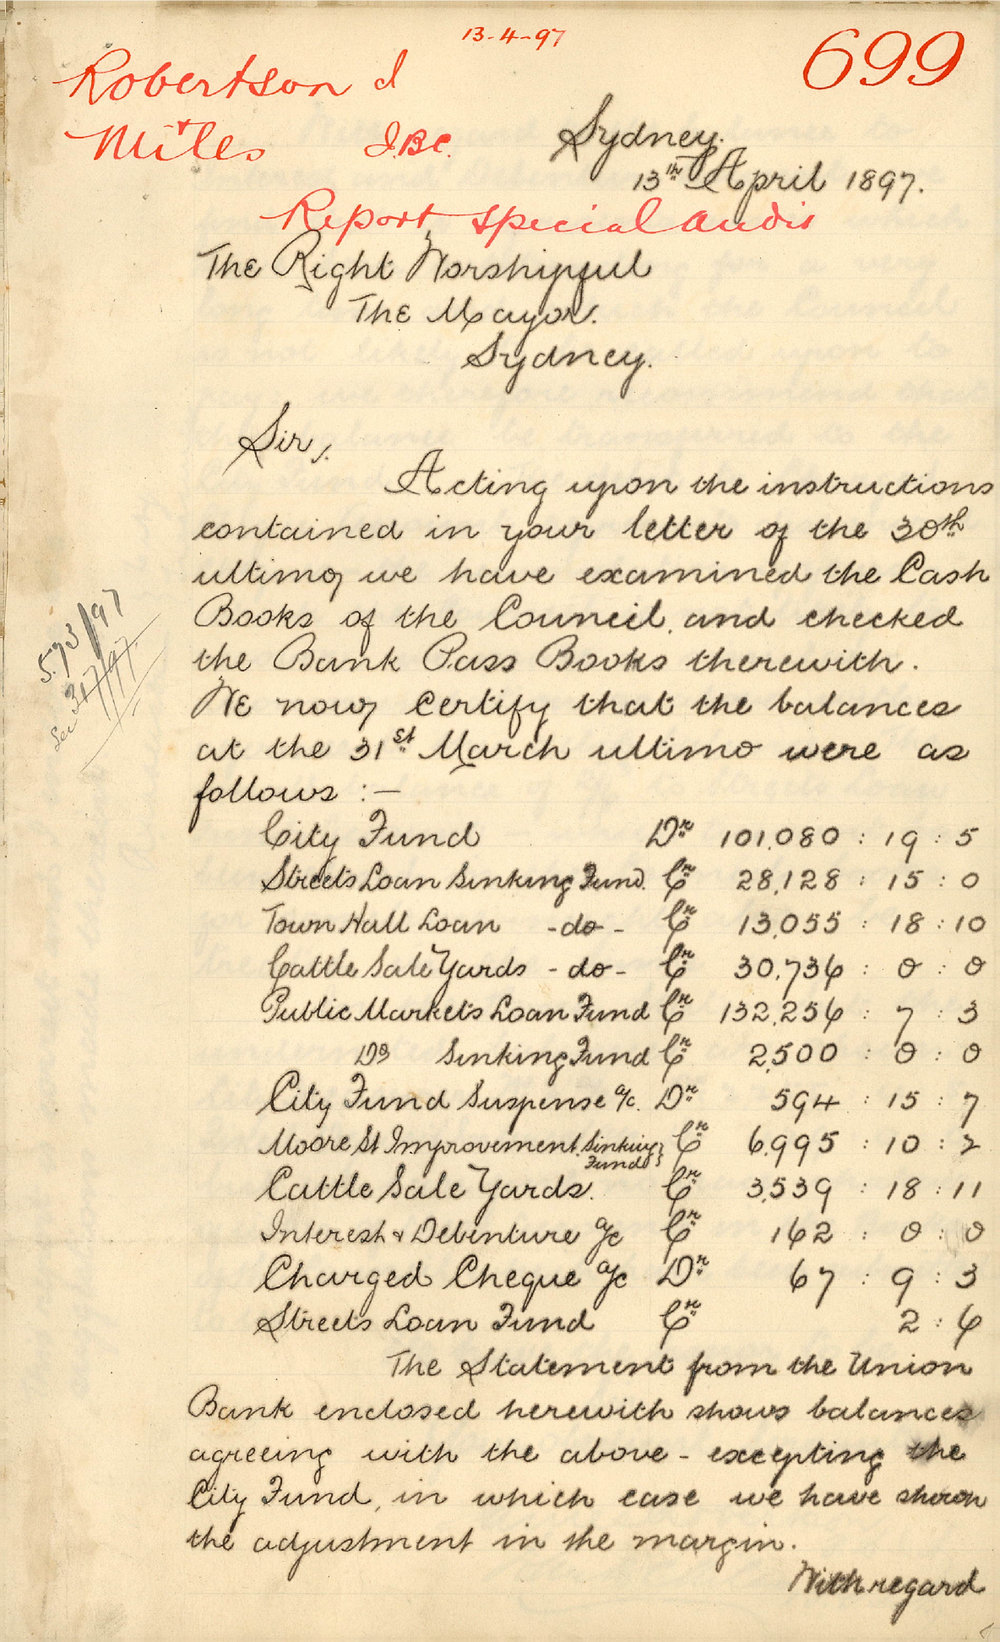 13-4-97
699
Robertson J
Miles J.B.C.
Sydney.
13th April 1897.
Report, Special Audit
The Right Worshipful
The Mayor.
Sydney.
Sir,
Acting upon the instructions
contained in your letter of the 30th
ultimo, we have examined the Cash
Books of the Council, and checked
the Bank Pass Books therewith.
We now certify that the balances
at the 31st March ultimo were as
follows :—
573/97
317/97
City Fund Dr 101,080 : 19 : 5
Streets Loan Sinking Fund. Cr 28,128 : 15 : 0
Town Hall Loan -do- Cr 13,055 : 18 : 10
Cattle Sale Yards -do- Cr 30,736 : 0 : 0
Public Markets Loan Fund Cr 132,256 : 7 : 3
Do Sinking Fund Cr 2,500 : 0 : 0
City Fund Suspense a/c. Dr 594 : 15 : 7
Moore St Improvement Sinking Fund} Cr 6,995 : 10 : 2
Cattle Sale Yards. Cr 3,539 : 18 : 11
Interest & Debenture a/c Cr 162 : 0 : 0
Charged Cheque a/c Dr 67 : 9 : 3
Streets Loan Fund Cr 2 : 6
The Statement from the Union
Bank enclosed herewith shows balances
agreeing with the above - excepting the
City Fund, in which case we have shown
the adjustment in the margin.
With regard